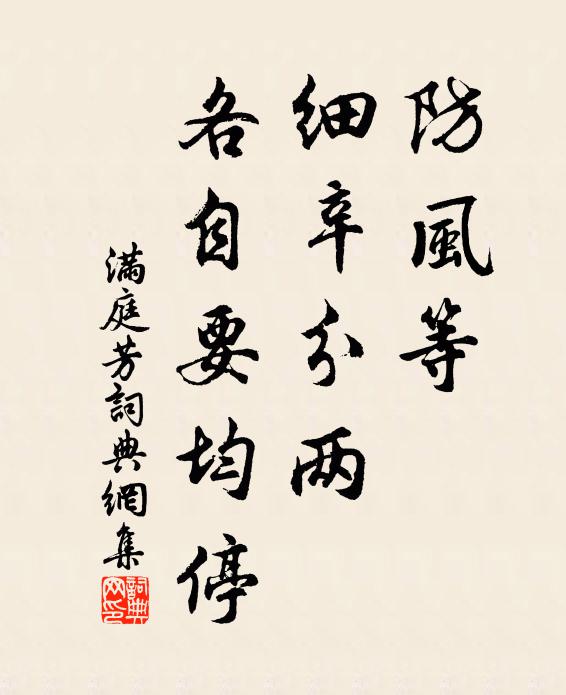 防風等
细辛分两
各自要均停
满庭芳詞典網集
詞典
网印